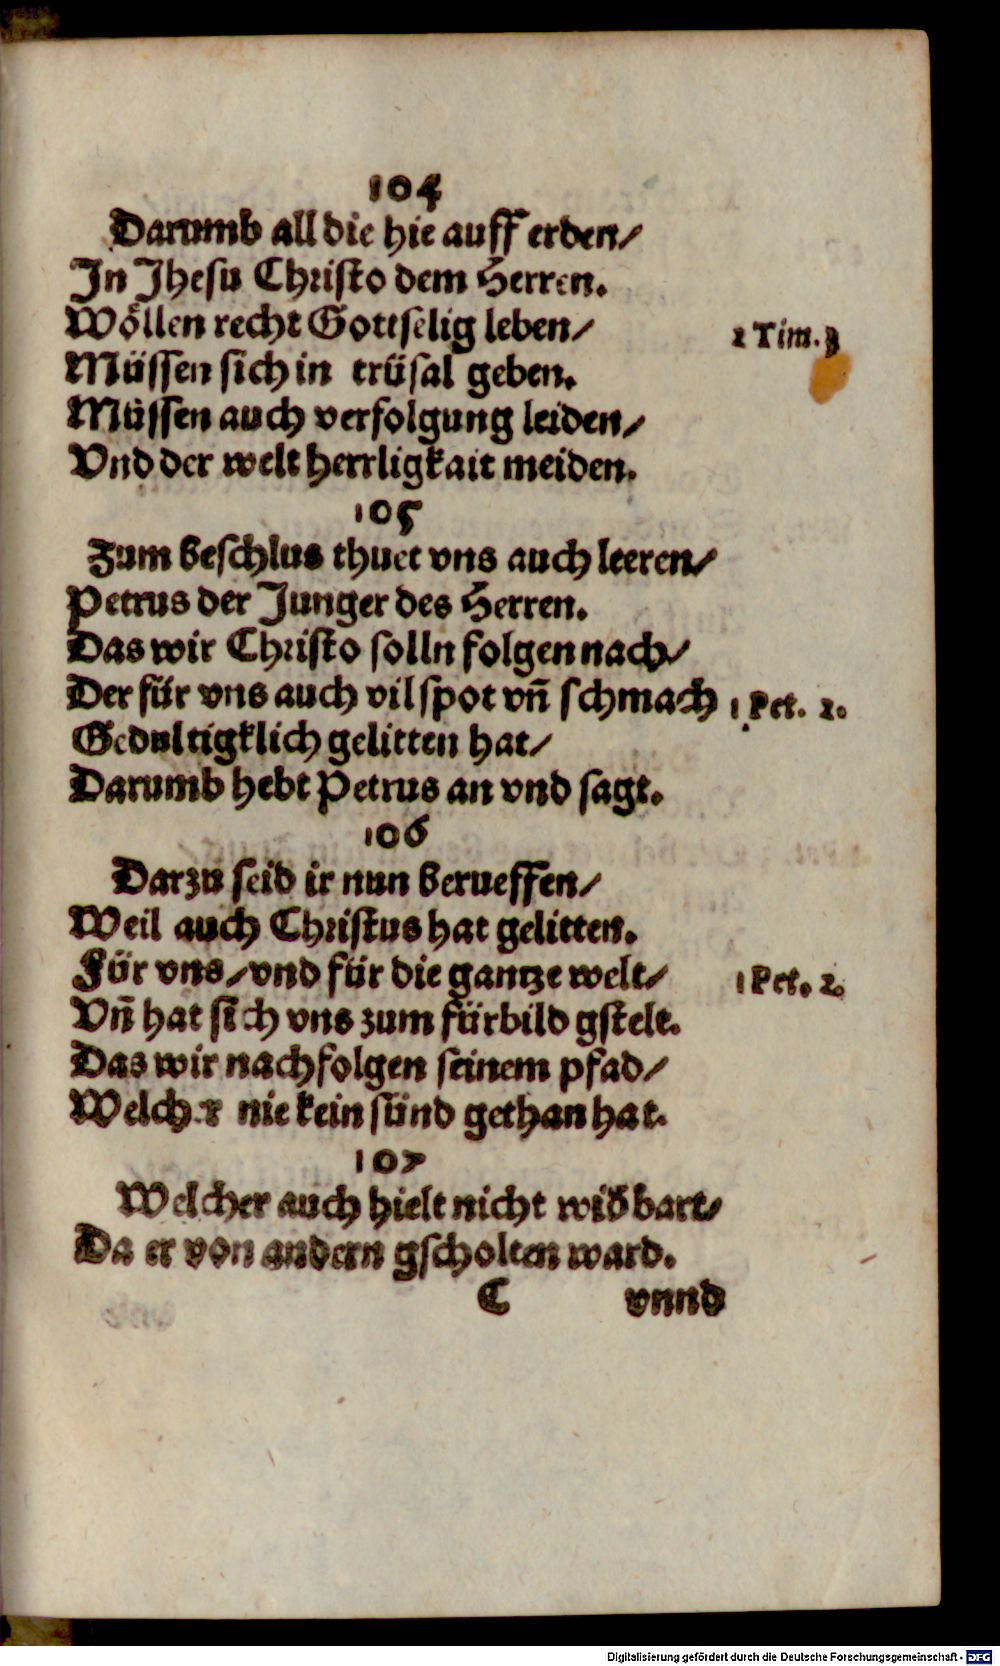 104
Darumb all die hie auff erden/
In Jhesu Christo dem Herren.
Wöllen recht Gottselig leben/ 2 Tim. 3
Müssen sich in trüsal geben.
Müssen auch verfolgung leiden/
Vnd der welt herrligkait meiden.
105
Zum beschlus thuet vns auch leeren/
Petrus der Junger des Herren.
Das wir Christo solln folgen nach/
Der für vns auch vil spot vñ schmach 1 Pet. 2.
Gedultigklich gelitten hat/
Darumb hebt Petrus an vnd sagt.
106
Darzu seid ir nun berueffen/
Weil auch Christus hat gelitten.
Für vns/vnd für die gantze welt/ 1 Pet. 2.
Vñ hat sich vns zum fürbild gstelt.
Das wir nachfolgen seinem pfad/
Welcher nie kein sünd gethan hat.
107
Welcher auch hielt nicht wid̄ bart/
Da er von andern gscholten ward.
C vnnd
Digitalisierung gefördert durch die Deutsche Forschungsgemeinschaft - DFG